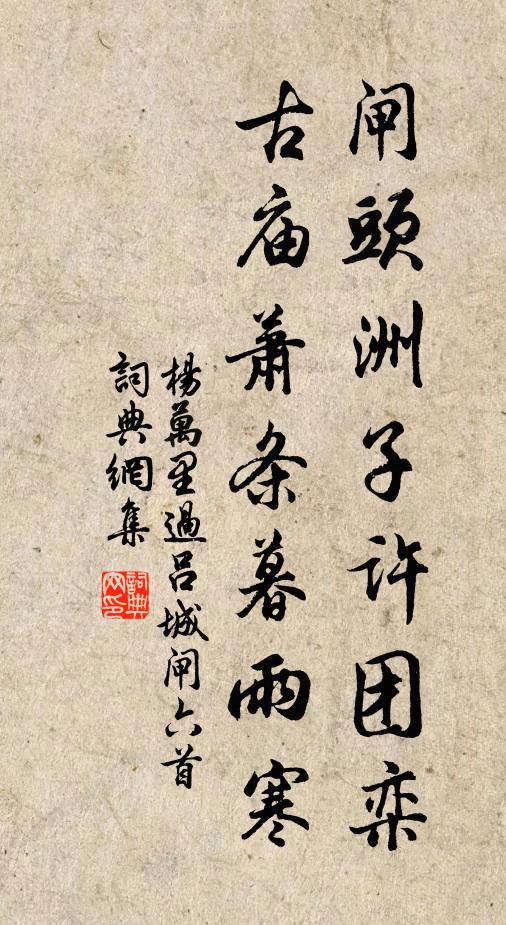 闸頭洲子许团栾
古庙蕭条暮雨寒
楊萬里過吕城闸六首
詞典網集
詞典
网印